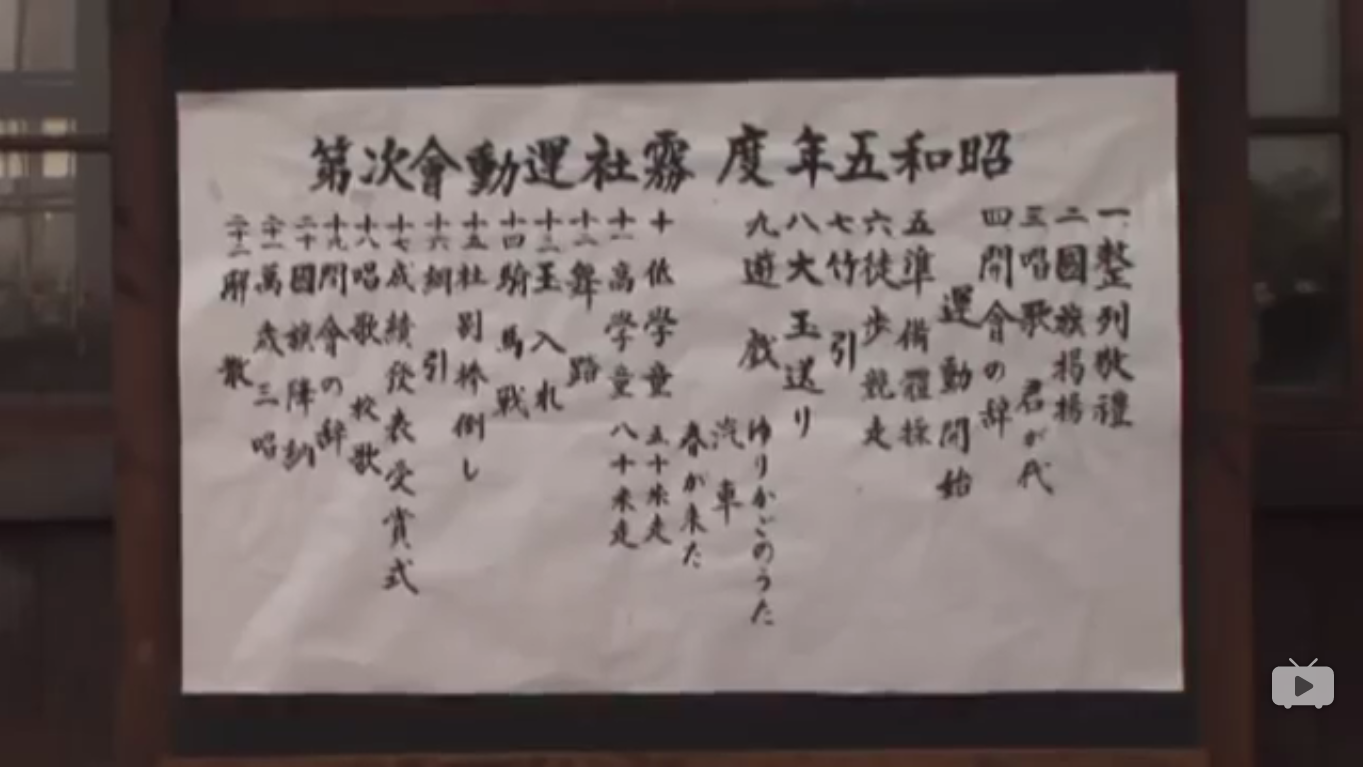 昭和五年度 霧社運動會次第
一、整列敬禮
二 國旗揭揚
三 唱歌 君が代
四 開會の辞
運動開始
五 準備體操
六 徒歩競走
七 竹引
八 大玉送り
九 遊戯 ゆりかごのうた
汽車
春が来た
十 低學童 五十米走
十一 高學童 八十米走
十二 舞踏
十三 玉入れ
十四 騎馬戦
十五 社別棒倒し
十六 綱引
十七 成績發表受賞式
十八 唱歌 校歌
十九 閉會の辞
二十 國旗降納
二十一 萬歳三唱
二十二 解散